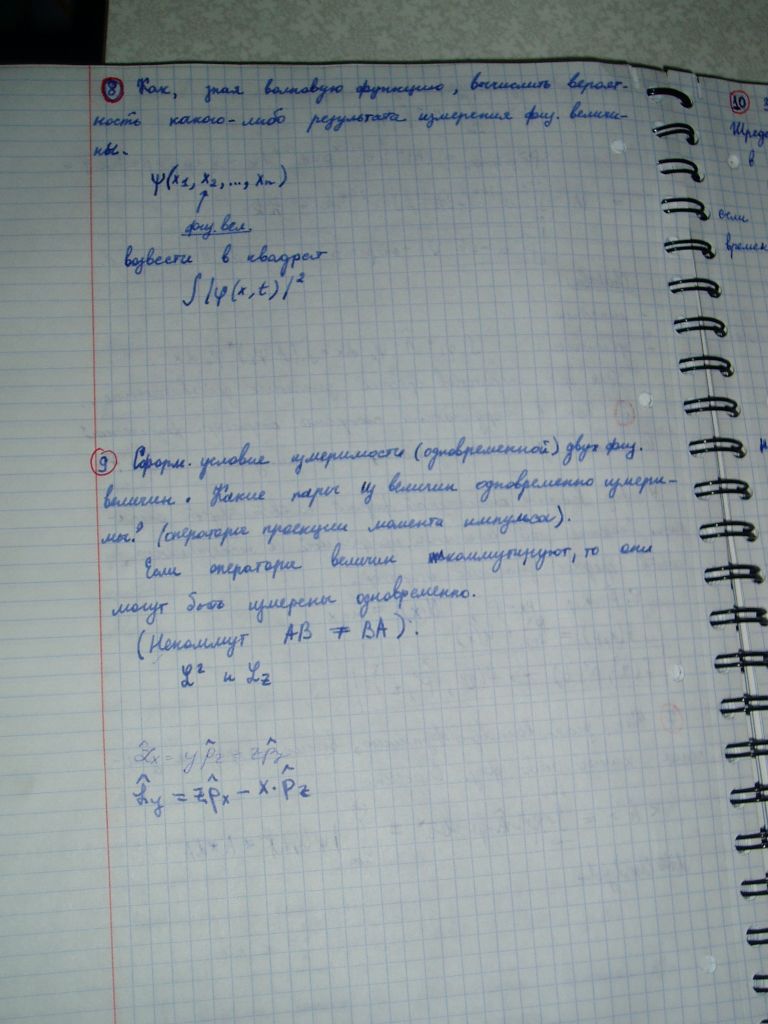 8 Как, зная волновую функцию, вычислить вероят-
ность какого-либо результата измерения физ. величи-
ны.
ψ(x1, x2, ..., xn)
физ. вел.
возвести в квадрат
∫|ψ(x,t)|²
9 Сформ. условие измеримости (одновременной) двух физ.
величин. Какие пары из величин одновременно измери-
мы? (операторы проекции момента импульса).
Если операторы величин коммутируют, то они
могут быть измерены одновременно.
(Некоммут AB ≠ BA).
L² и Lz
L̂x = yp̂z = zp̂y
L̂y = zp̂x - x·p̂z
10
если
времен